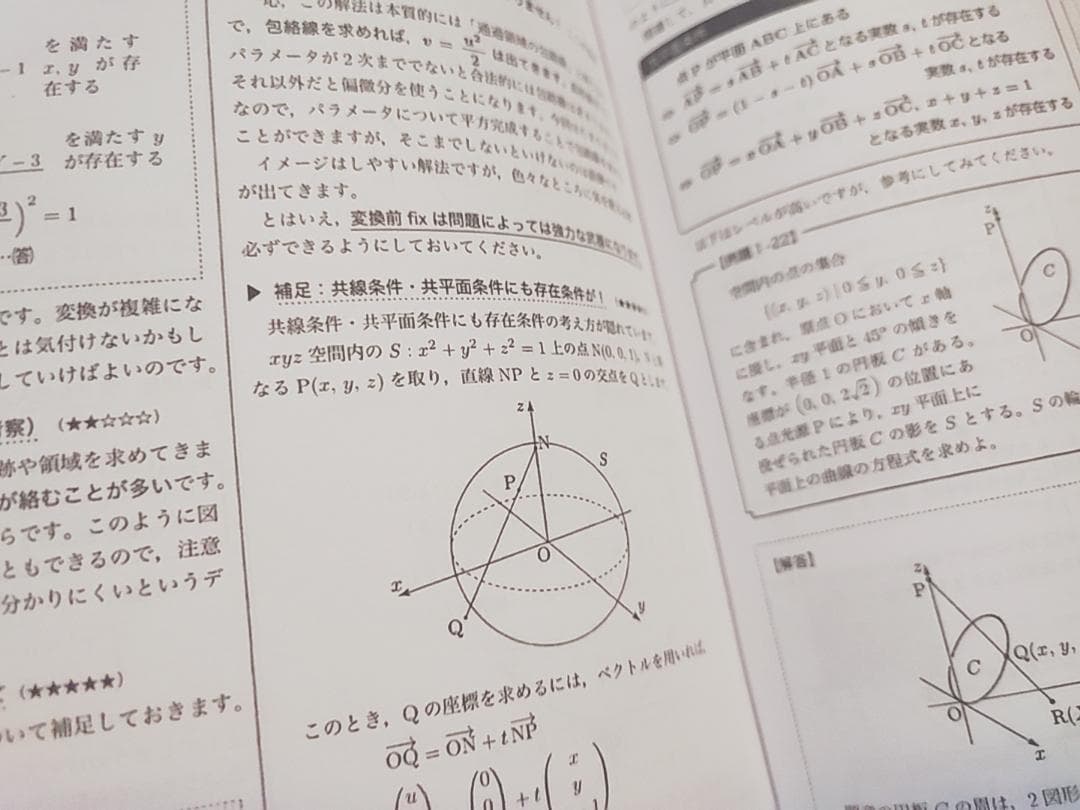 を満たす
-1 x, y が存
在する
を満たす y
-3 が存在する
)² = 1
…(答)
です。変換が複雑にな
とは気付けないかもし
していけばよいのです。
察) (★★☆☆☆)
跡や領域を求めてきま
が絡むことが多いです。
らです。このように図
ともできるので，注意
分かりにくいというデ
(★★★★★)
いて補足しておきます。
応，この解法は本質的には「通過領域の
で，包絡線を求めれば，v = u²/2 は出てきます。
パラメータが2次まででないと合法的には
それ以外だと偏微分を使うことになります。
なので，パラメータについて平方完成すること
ことができますが，そこまでしないといけない
イメージはしやすい解法ですが，色々なところに
が出てきます。
とはいえ，変換前 fix は問題によっては強力な武器になります
必ずできるようにしておいてください。
▶ 補足：共線条件・共平面条件にも存在条件が！
共線条件・共平面条件にも存在条件の考え方が隠れています。
xyz 空間内の S : x² + y² + z² = 1 上の点 N(0, 0, 1),
なる P(x, y, z) を取り，直線 NP と z = 0 の交点を Q と
z
N
S
P
O
x
y
Q
このとき，Q の座標を求めるには，ベクトルを用いれば
OQ = ON + tNP
(u 0 0 + t( x y 1
点 P が平面 ABC 上にある
⇔ AP = sAB + tAC となる実数 s, t が存在する
⇔ OP = (1 - s - t)OA + sOB + tOC となる
実数 s, t が存在する
⇔ OP = xOA + yOB + zOC, x + y + z = 1
となる実数 x, y, z が存在する
はレベルが高いですが，参考にしてみてください。
【例題 1-22】
空間内の点の集合
{(x, y, z) | 0 ≦ y, 0 ≦ z}
に含まれ，原点 O において x 軸
に接し，xy 平面と 45° の傾きを
なす，半径 1 の円板 C がある。
座標が (0, 0, 2√2) の位置にあ
る点光源 P により，xy 平面上に
投ぜられた円板 C の影を S とする。S の輪
平面上の曲線の方程式を求めよ。
z
P
C
O
【解答】
z
P
C
Q(x, y,
O
R(
x
の円板 C の周は，2 図形